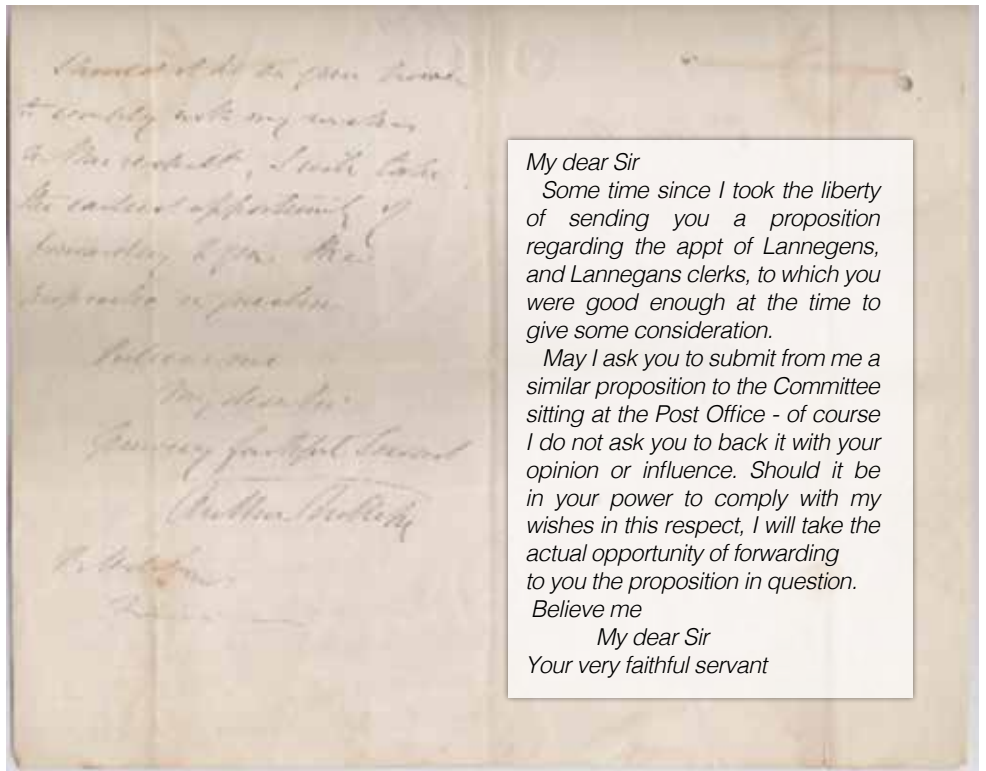 Should it be in your power
to comply with my wishes
in this respect, I will take
the earliest opportunity of
forwarding to you the
in question
Believe me
My dear Sir
Your very faithful Servant
My dear Sir
Some time since I took the liberty
of sending you a proposition
regarding the appt of Lannegens,
and Lannegans clerks, to which you
were good enough at the time to
give some consideration.
May I ask you to submit from me a
similar proposition to the Committee
sitting at the Post Office - of course
I do not ask you to back it with your
opinion or influence. Should it be
in your power to comply with my
wishes in this respect, I will take the
actual opportunity of forwarding
to you the proposition in question.
Believe me
My dear Sir
Your very faithful servant